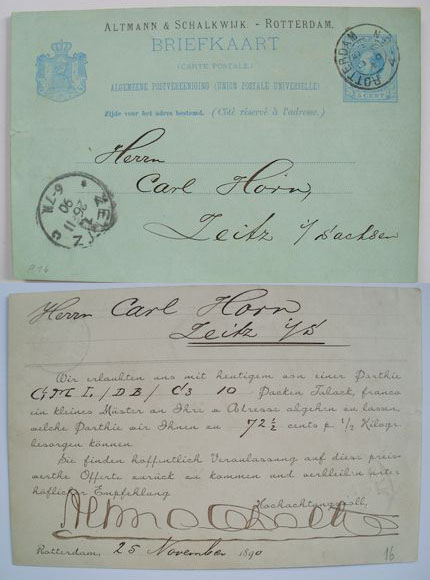 ALTMANN & SCHALKWIJK. - ROTTERDAM.
BRIEFKAART
(CARTE POSTALE)
ALGEMEENE POSTVEREENIGING (UNION POSTALE UNIVERSELLE)
Zijde voor het adres bestemd. (Côté réservé à l'adresse.)
ROTTERDAM
5 CENT
Herrn
Carl Horn,
Zeitz i/Sachsen
ZEITZ
26 11
90
6-7N
Herrn Carl Horn,
Zeitz i/S
Wir erlaubten uns mit heutigem von einer Parthie
GMTL/DB/C3 10 Packen Taback, franco
ein kleines Muster an Ihre w Adresse abgehen zu lassen,
welche Parthie wir Ihnen zu 72½ cents p. ½ Kilogr.
besorgen können.
Sie finden hoffentlich Veranlassung auf diese preis-
werthe Offerte zurück zu kommen und verbleiben unter
höflicher Empfehlung
Hochachtungsvoll,
Rotterdam, 25 November 1890
16